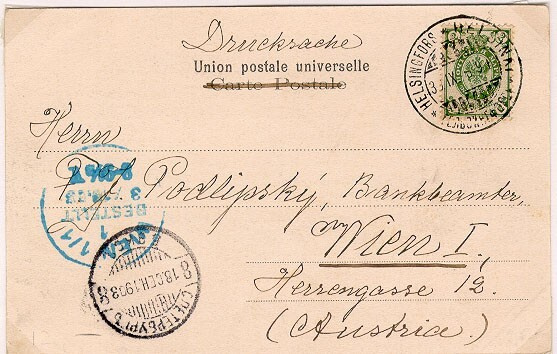 Drucksache
Union postale universelle
Carte Postale
HELSINGFORS
Herrn
Podlipský, Bankbeamter,
Wien I,
Herrengasse 12.
(Austria.)
BESTELLT
WIEN
1/1
С.ПЕТЕРБУРГЪ